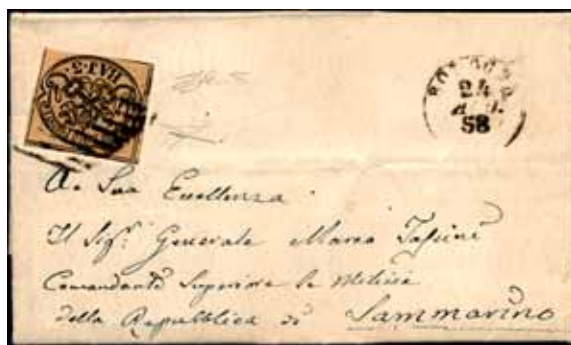 BAJ·3
BOLOGNA
24
58
A Sua Eccellenza
Il Sigr. Generale Marco
Comandante Superiore le Milizie
della Repubblica di Sammarino